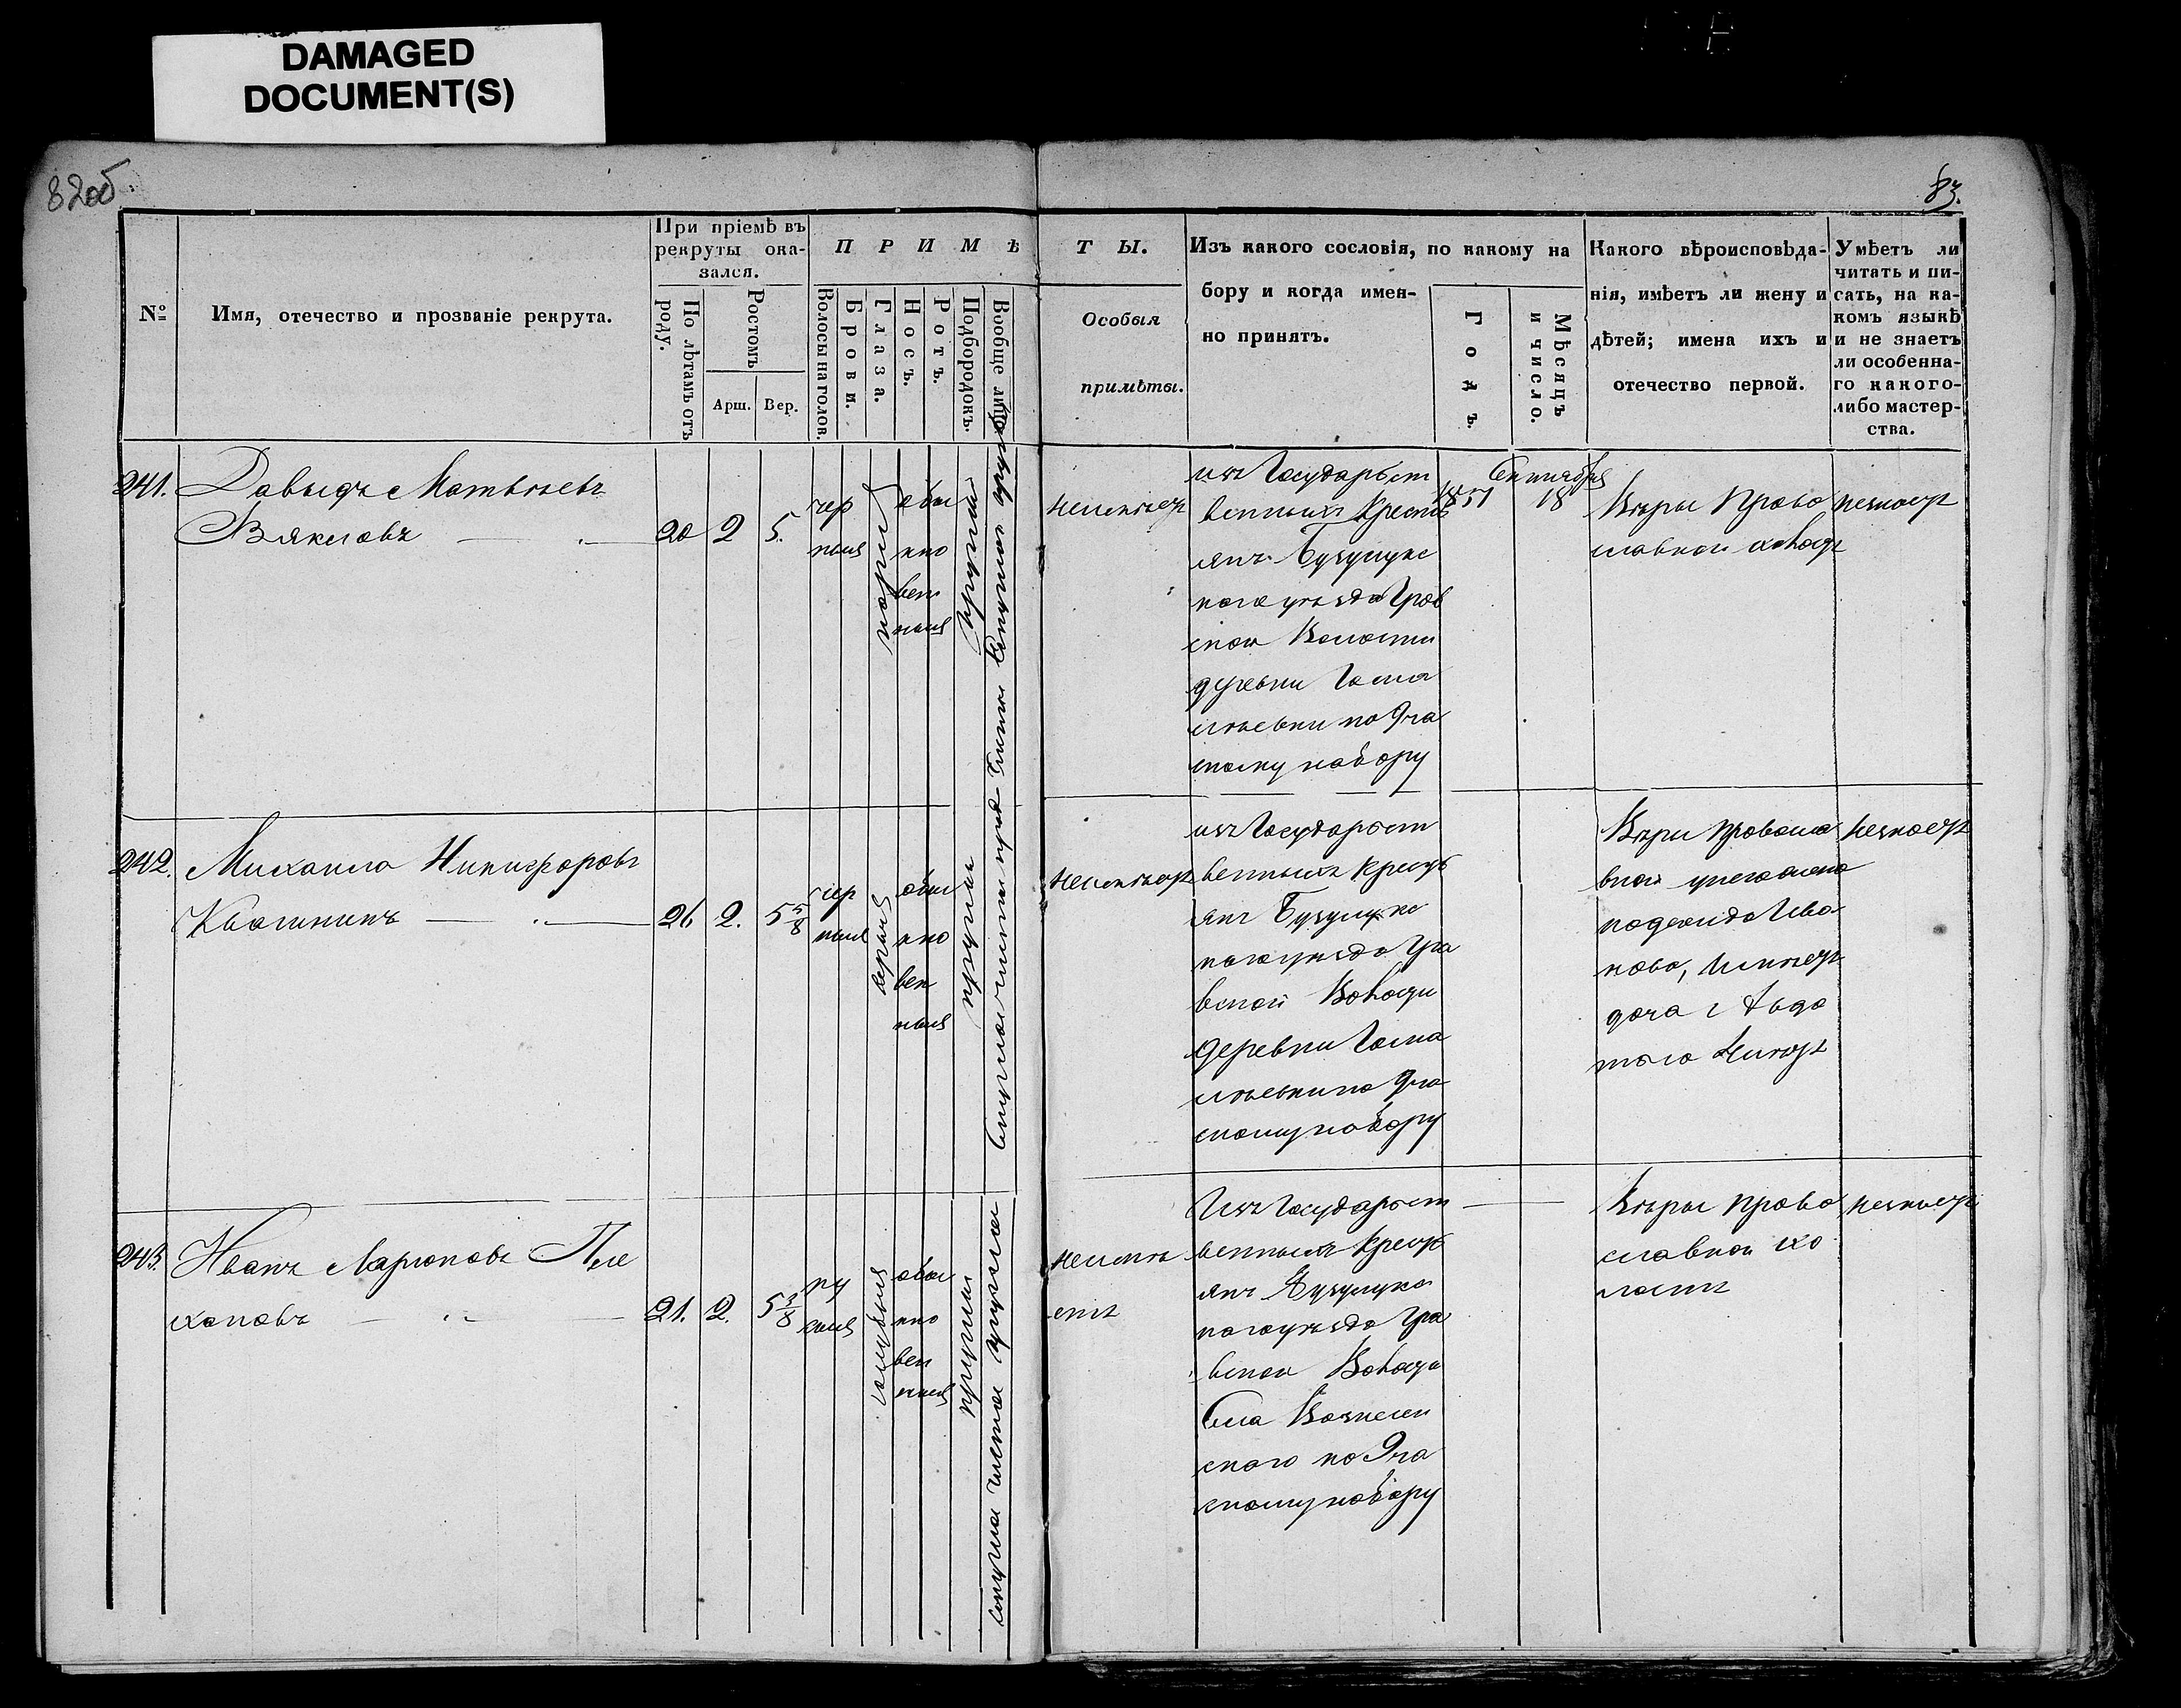 DAMAGED
DOCUMENT(S)
82об.
83.
№
Имя, отечество и прозваніе рекрута.
При пріемѣ въ
рекруты ока-
зался.
По лѣтамъ отъ
роду.
Ростомъ
Арш.
Вер.
ПРИМѢ
Волосы на голов.
Брови.
Глаза.
Носъ.
Ротъ.
Подбородокъ.
Вообще лицо
ТЫ.
Особыя
примѣты.
Изъ какого сословія, по какому на
бору и когда имен-
но принятъ.
Годъ.
Мѣсяцъ
и число.
Какого вѣроисповѣда-
нія, имѣетъ ли жену и
дѣтей; имена ихъ и
отечество первой.
Умѣетъ ли
читать и пи-
сать, на ка-
комъ языкѣ
и не знаетъ
ли особенна-
го какого-
либо мастер-
ства.
241.
Давыдъ Матвѣевъ
Вякловъ
20
2
5.
чер
ныя
карiя
обы
кно
вен
ныя
круглый
неимѣетъ
изъ Государст
венныхъ Кресть
янъ Бузулукс
кого уѣзда
ской Волости
деревни
по 9 ча
скому набору
1851
Сентября
18
Вѣры Право
славной холостъ
незнаетъ
242.
Михаила Никифоровъ
Квашнинъ
26
2.
5 5/8
чер
ныя
обы
кно
вен
ныя
круглый
неимѣетъ
изъ Государст
венныхъ Кресть
янъ Бузулукс
кого уѣзда
вской Волости
деревни
по 9 ча
скому набору
Вѣры Правосла
вной у него жена
Надежда Ива
нова, имѣетъ
дочь
незнаетъ
243.
Иванъ Ларионовъ Пле
хановъ
21.
2.
5 3/8
ру
сыя
голубыя
обы
кно
вен
ныя
круглый
неимѣ
етъ
Изъ Государст
венныхъ Кресть
янъ Бузулукс
кого уѣзда Гра
вской Волости
Села Вознесен
скаго по 9 ча
скому набору
Вѣры Право
славной хо
лостъ
незнаетъ